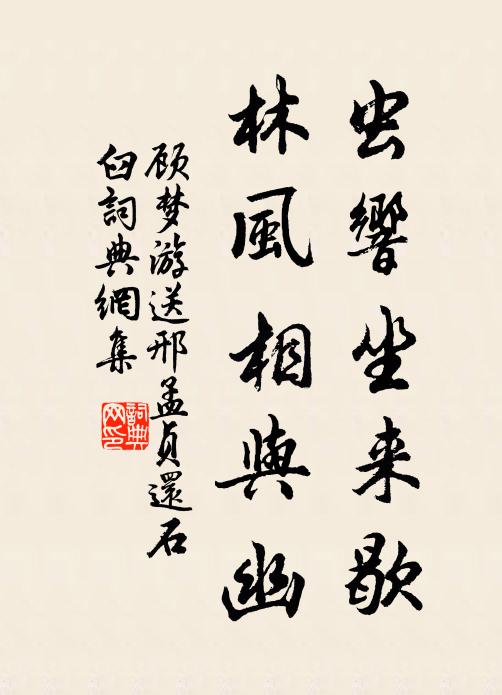 虫響坐来歇
林風相與幽
顾梦游送邢孟貞還石
臼詞典網集
詞典網印